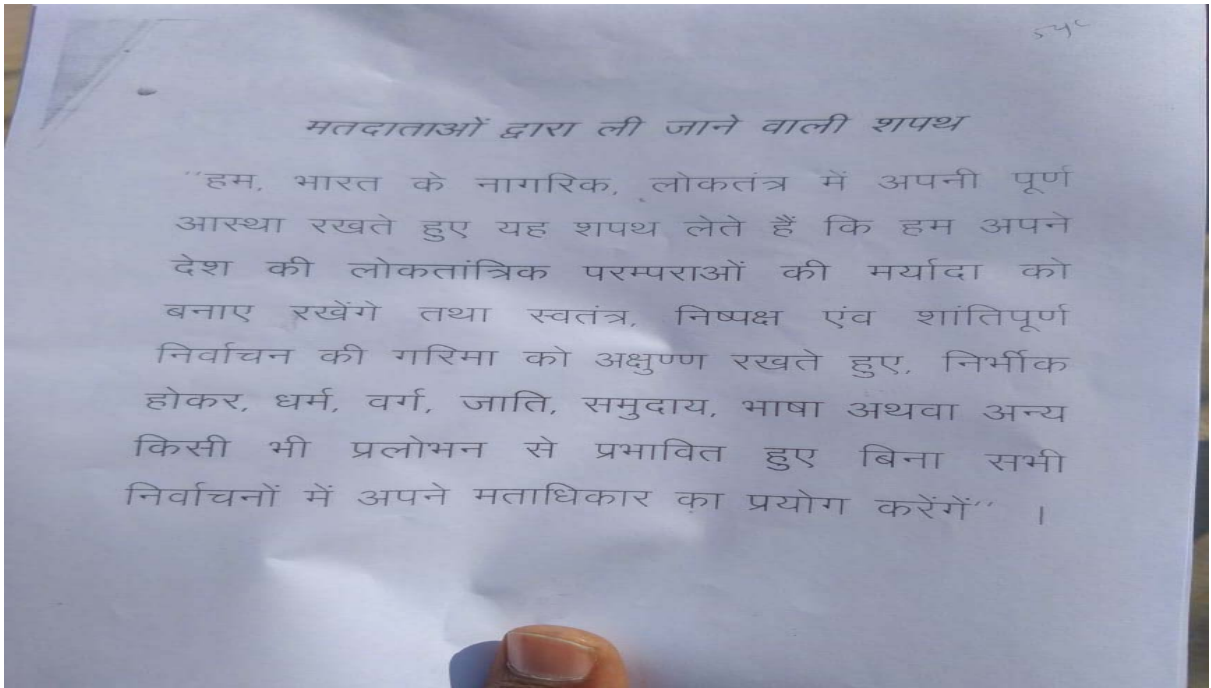 मतदाताओं द्वारा ली जाने वाली शपथ
“हम, भारत के नागरिक, लोकतंत्र में अपनी पूर्ण
आस्था रखते हुए यह शपथ लेते हैं कि हम अपने
देश की लोकतांत्रिक परम्पराओं की मर्यादा को
बनाए रखेंगे तथा स्वतंत्र, निष्पक्ष एंव शांतिपूर्ण
निर्वाचन की गरिमा को अक्षुण्ण रखते हुए, निर्भीक
होकर, धर्म, वर्ग, जाति, समुदाय, भाषा अथवा अन्य
किसी भी प्रलोभन से प्रभावित हुए बिना सभी
निर्वाचनों में अपने मताधिकार का प्रयोग करेंगें” ।